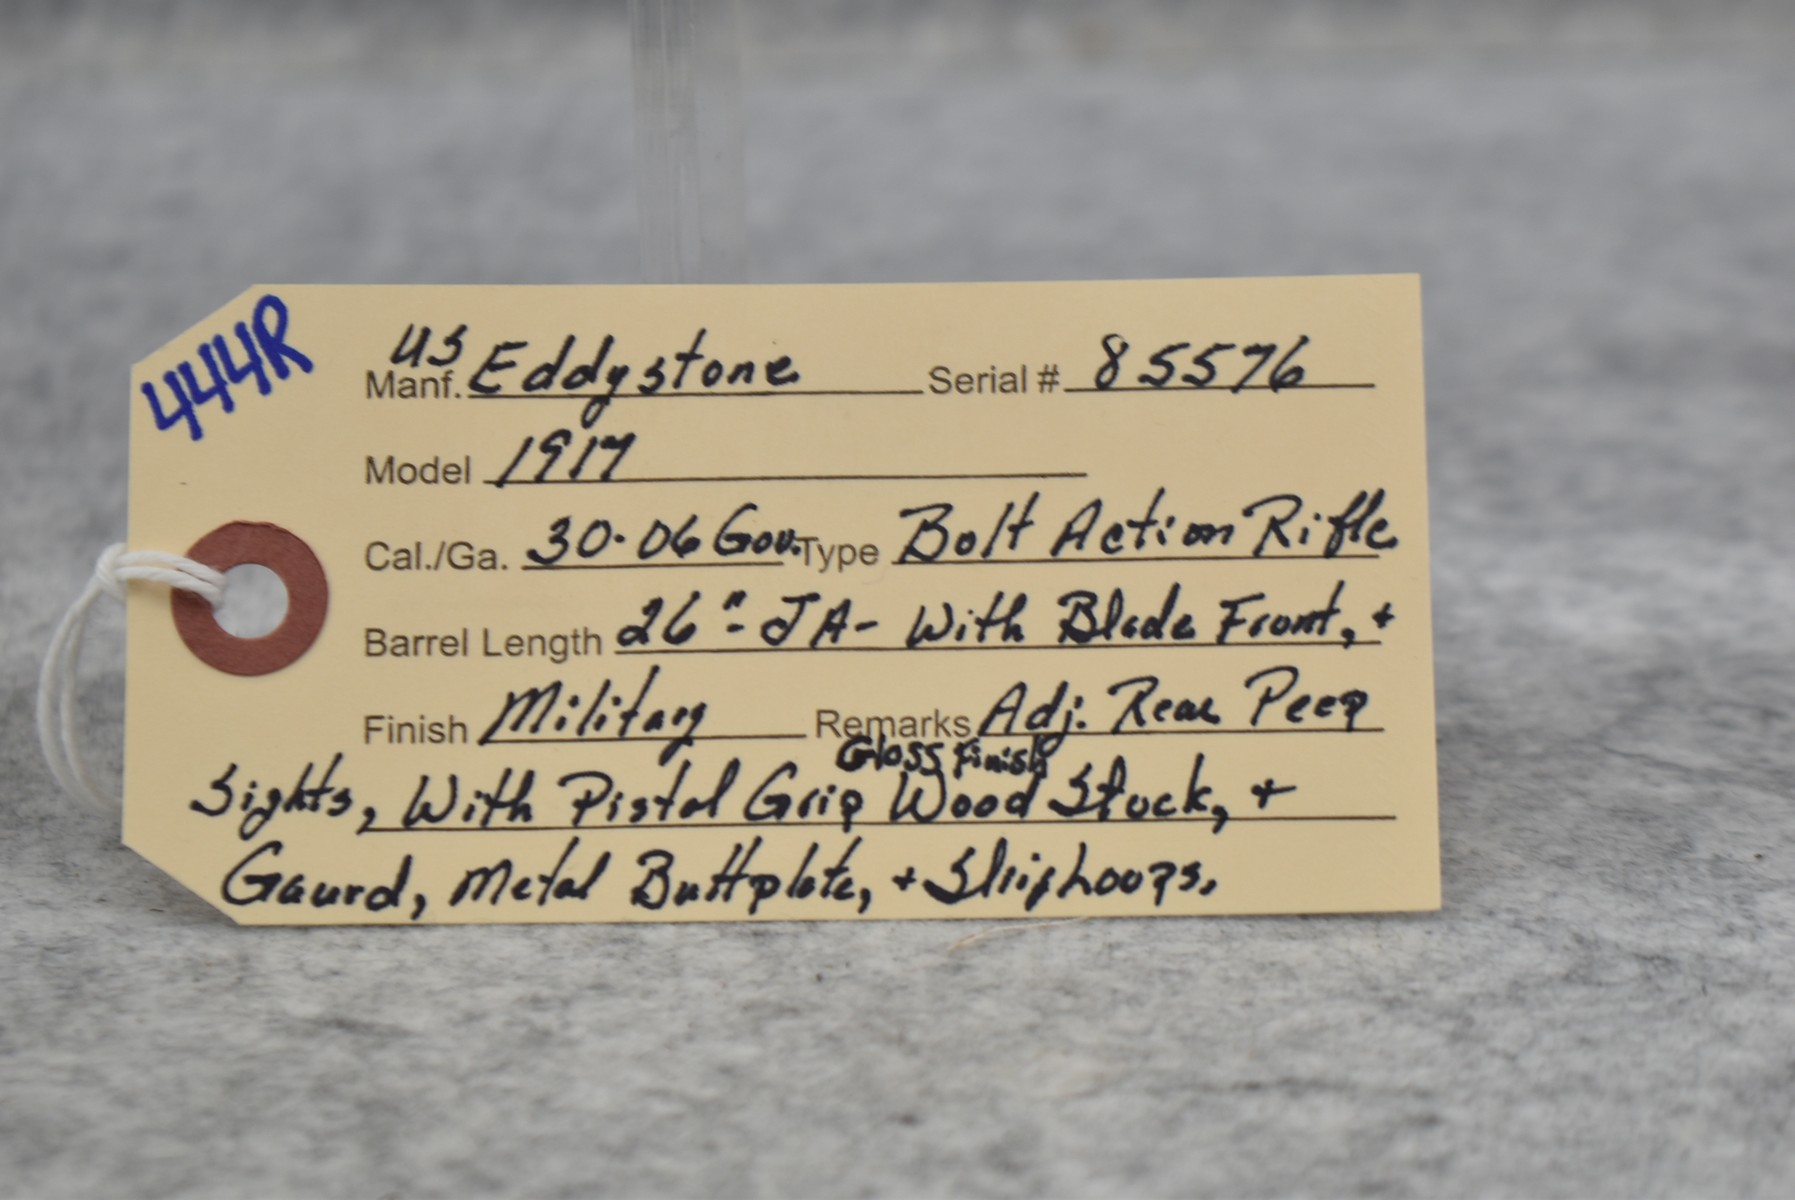 444R
US
Manf. Eddystone Serial # 85576
Model 1917
Cal./Ga. 30-06 Gov. Type Bolt Action Rifle
Barrel Length 26"- JA- With Blade Front, +
Finish Military Remarks Adj. Rear Peep
Gloss Finish
Sights, With Pistol Grip Wood Stock, +
Gaurd, Metal Buttplate, +